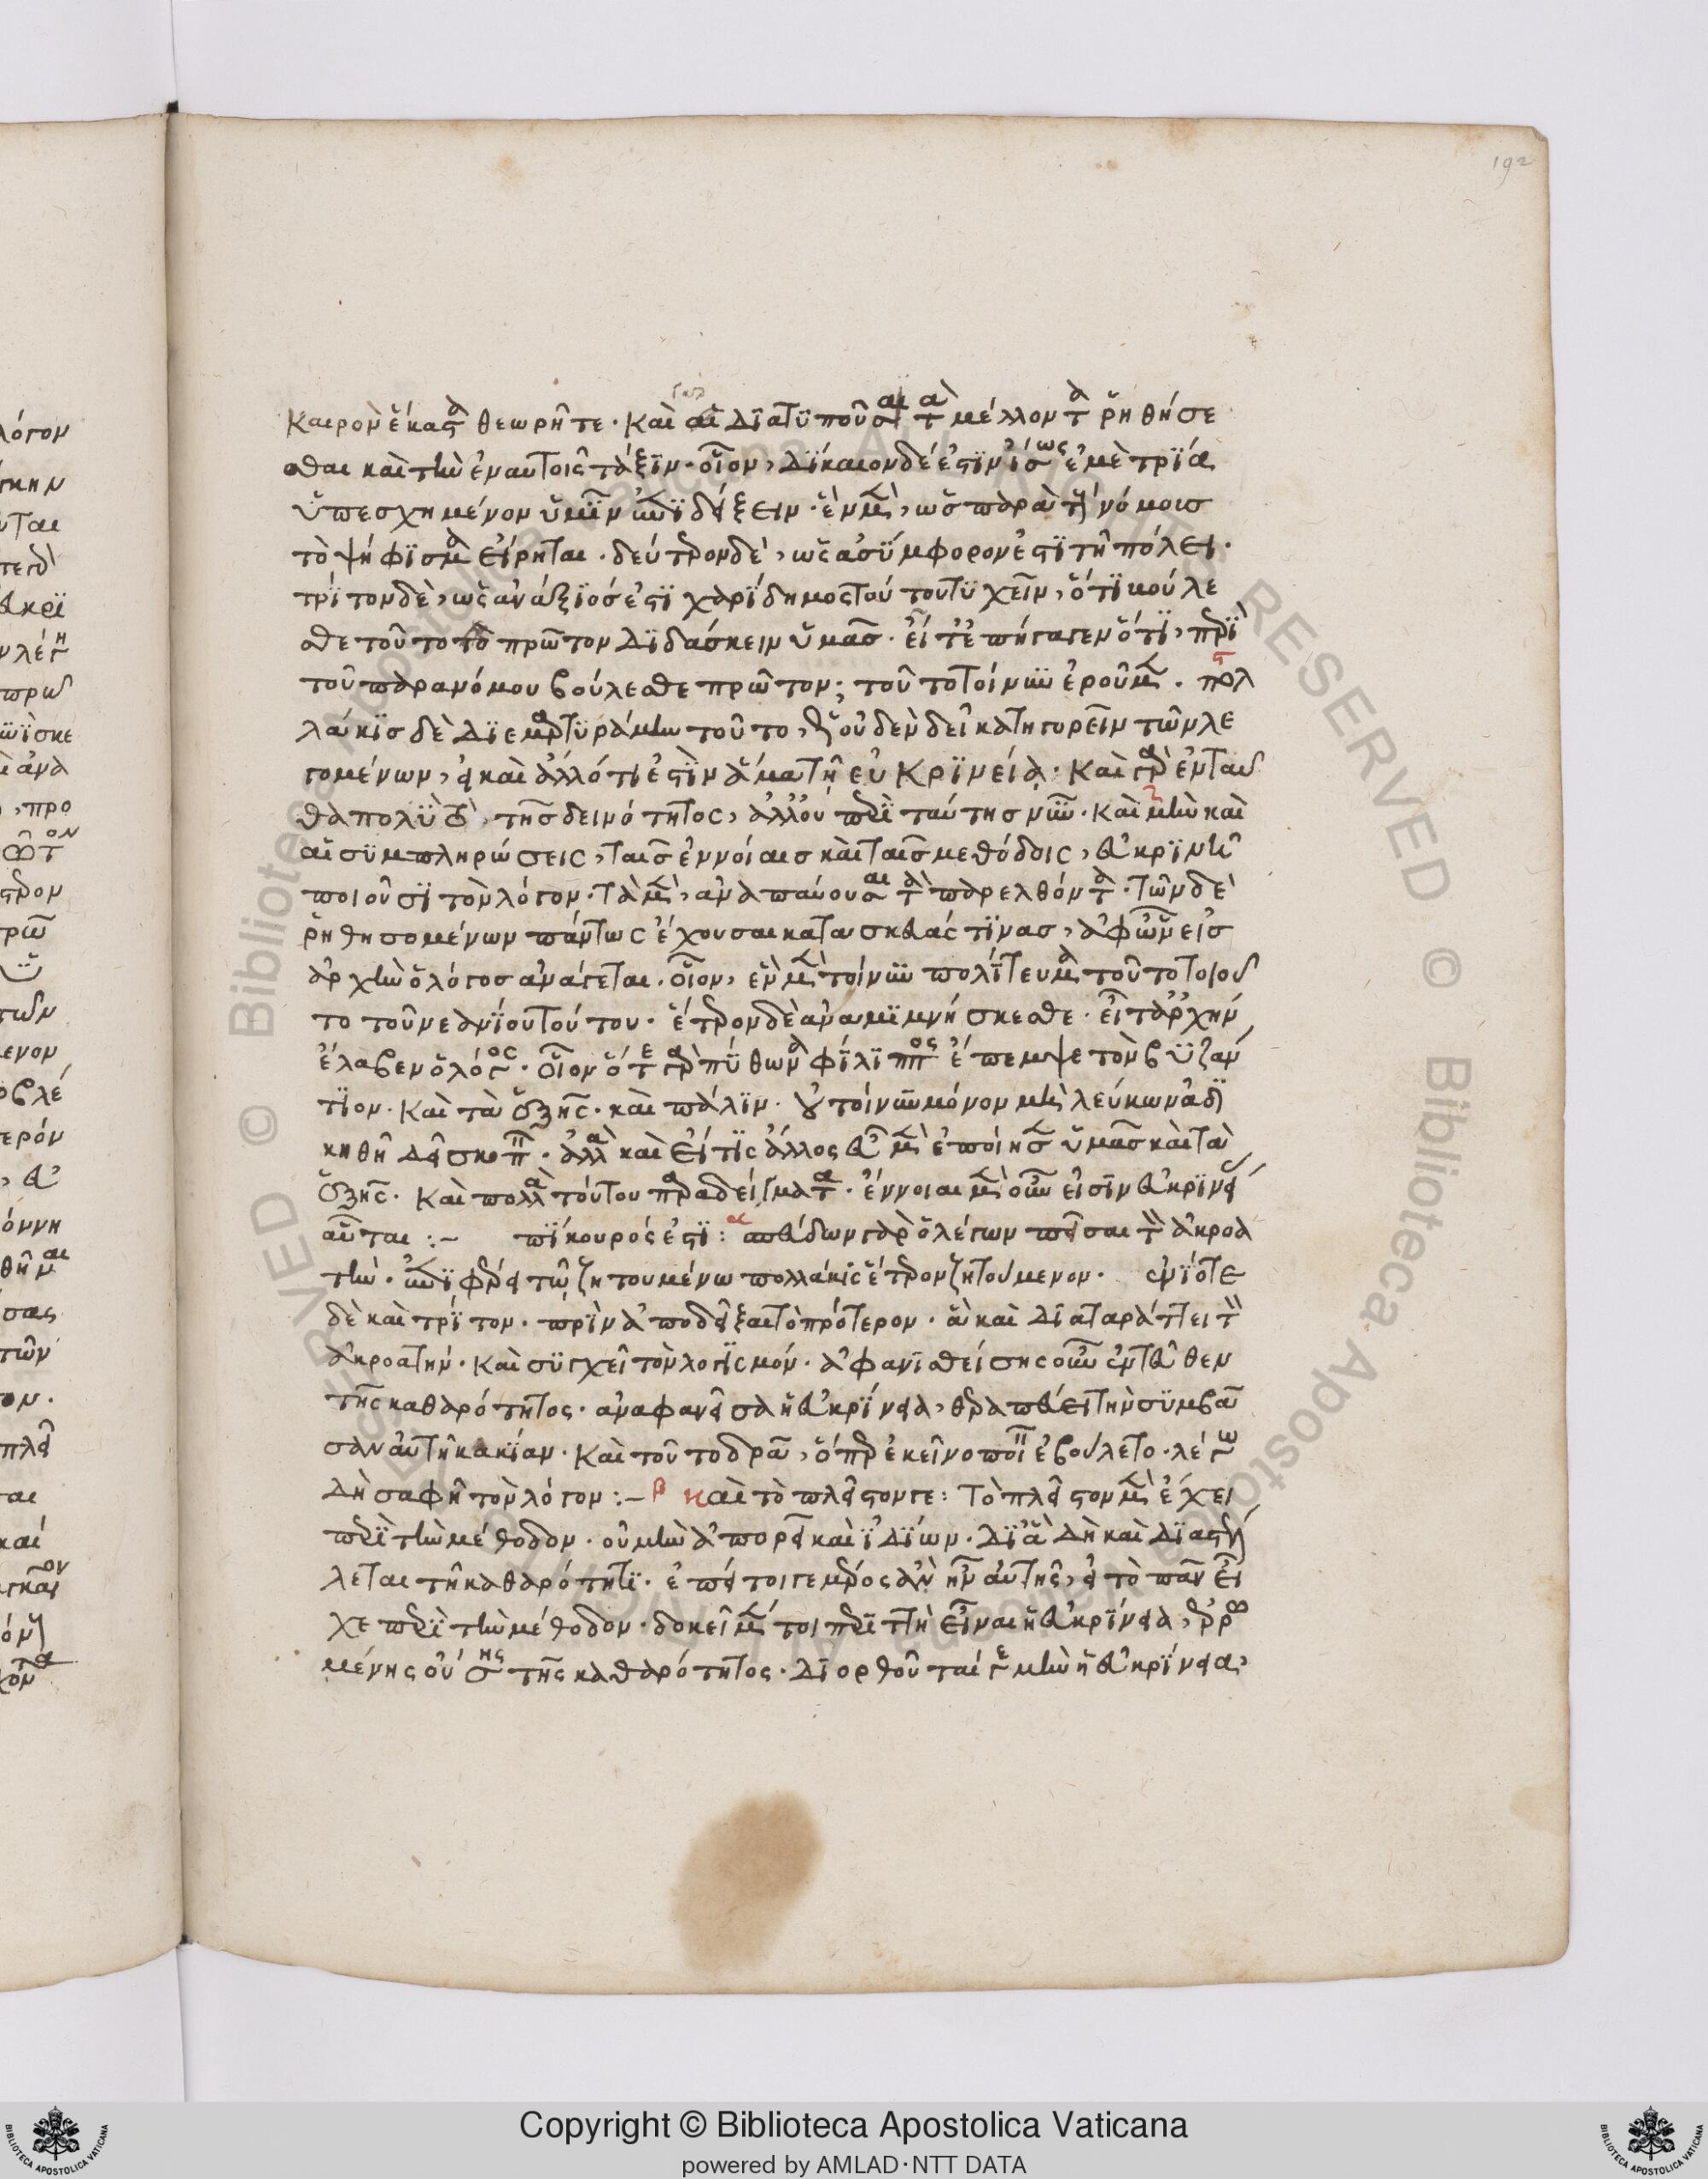 192
καιρὸν ἕκαστα θεωρῆτε· καὶ αἱ διατυποῦσαι τὰ μέλλοντα ῥηθήσε
σθαι καὶ τὴν ἐν αὐτοῖς τάξιν· οἷον, δίκαιον δέ ἐστιν ἴσως ἐμὲ τρία
ὑπεσχημένον ὑμῖν ἐπιδείξειν· ἓν μὲν, ὡς παρὰ τοὺς νόμους
τὸ ψήφισμα εἴρηται· δεύτερον δὲ, ὡς ἀσύμφορον ἐστι τῇ πόλει·
τρίτον δὲ, ὡς ἀνάξιός ἐστι χαρίδημος τού του τυχεῖν, ὅτι βούλε
σθε τοῦτο τὸ πρῶτον διδάσκειν ὑμᾶς· εἶτ' ἐπήγαγεν ὅτι, περὶ
τοῦ παρανόμου βούλεσθε πρῶτον; τοῦτο τοίνυν ἐροῦμεν· πολ
λάκις δὲ διεμαρτυράμην τοῦτο, ὅτι οὐδὲν δεῖ κατηγορεῖν τῶν λε
γομένων, εἰ καὶ ἄλλό τι ἐστὶν ἅμα τῇ εὐκρινείᾳ· καὶ γὰρ ἐνταῦ
θα πολὺ τὸ τῆς δεινότητος, ἀλλ' οὐ περὶ ταύτης νῦν· καὶ μὴν καὶ
αἱ συμπληρώσεις, ταῖς ἐννοίαις καὶ ταῖς μεθόδοις, εὐκρινῆ
ποιοῦσι τὸν λόγον· τὰ μὲν, ἀναπαύουσαι τὰ παρελθόντα· τῶν δὲ
ῥηθησομένων πάντως ἔχουσαι κατασκευάς τινας, ἀφ' ὧν εἰς
ἀρχὴν ὁ λόγος ἀνάγεται· οἷον, ἓν μὲν τοίνυν πολίτευμα τοῦτο τοιοῦ
το τοῦ νεανίου τούτου· ἕτερον δὲ ἀναμιμνήσκεσθε· εἶτ' ἀρχὴν
ἔλαβεν ὁ λόγος· οἷον ὅτε γὰρ πύθωνα φίλιππος ἔπεμψε τὸν βυζάν
τιον· καὶ τὰ ἑξῆς· καὶ πάλιν· οὐ τοίνυν μόνον μὴ λεύκων ἀδι
κηθῇ δεῖ σκοπεῖν· ἀλλὰ καὶ εἴ τις ἄλλος εὖ μὲν ἐποίησεν ὑμᾶς καὶ τὰ
ἑξῆς· καὶ πολλὰ τούτου παραδείγματα· ἔννοιαι μὲν οὖν εἰσὶν εὐκρινεῖς
αὗται :- πίκουρός ἐστι: σπεύδων γὰρ ὁ λέγων πεῖσαι τὸν ἀκροα
τὴν· ἐπιφέρει τῷ ζητουμένῳ πολλάκις ἕτερον ζητούμενον· ἐνίοτε
δὲ καὶ τρίτον· πρὶν ἀποδεῖξαι τὸ πρότερον· ἃ καὶ διαταράττει τὸν
ἀκροατήν· καὶ συγχεῖ τὸν λογισμόν· ἀφανισθείσης οὖν ἐντεῦθεν
τῆς καθαρότητος· ἀναφανεῖσα ἡ εὐκρίνεια, θεραπεύει τὴν συμβᾶ
σαν αὐτῇ κακίαν· καὶ τοῦτο δρᾶν, ὅπερ ἐκεῖνο ποιεῖν ἐβούλετο· λέγω
δὴ σαφῆ τὸν λόγον :- β καὶ τὸ πλεῖστον γε: τὸ πλεῖστον μὲν ἔχει
περὶ τὴν μέθοδον· οὐ μὴν ἀπορεῖ καὶ ἰδίων· δι' ἃ δὴ καὶ διαστέλ
λεται τῇ καθαρότητι· ἐπεί τοι γε μέρος ἂν ἦν αὐτῆς, εἰ τὸ πᾶν εἶ
χε περὶ τὴν μέθοδον· δοκεῖ μέν τοι περιττὴ εἶναι ἡ εὐκρίνεια,
μένης οὔσης τῆς καθαρότητος· διορθοῦται γε μὴν ἡ εὐκρίνεια,
Copyright © Biblioteca Apostolica Vaticana
powered by AMLAD·NTT DATA